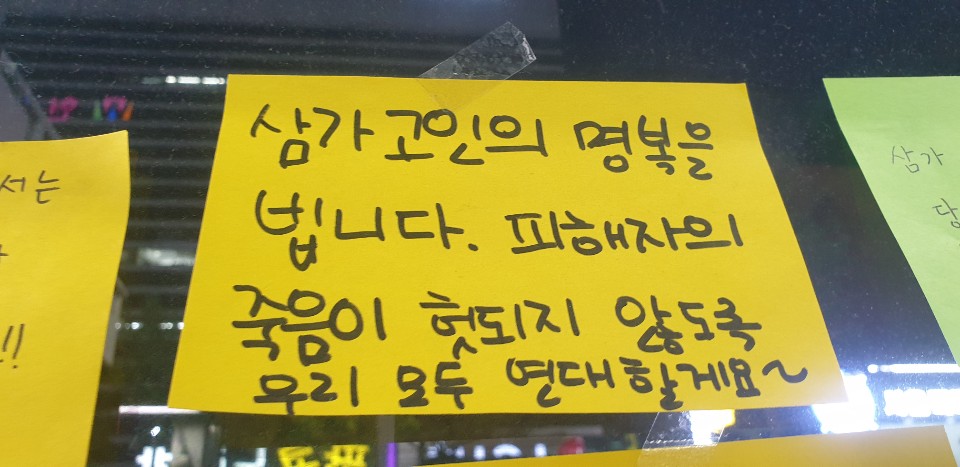 삼가 고인의 명복을
빕니다. 피해자의
죽음이 헛되지 않도록
우리 모두 연대할게요~
서는
!!
삼가
당